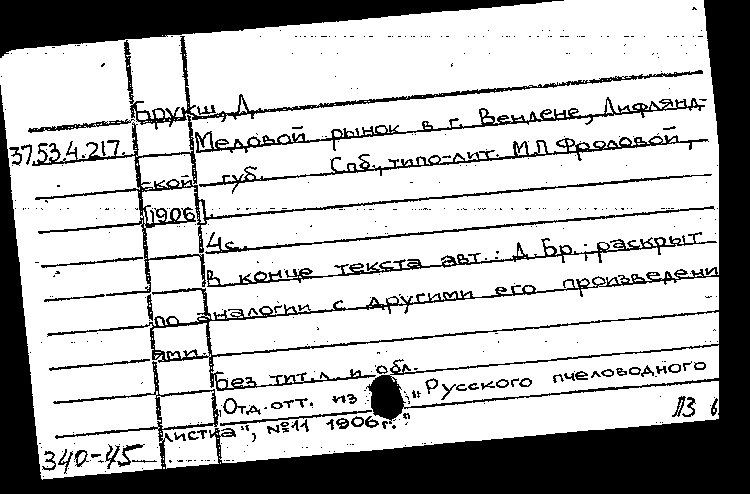 Брукш, Д.
37.53.4.217. Медовой рынок в г. Вендене, Лифлянд-
ской губ. Спб., типо-лит. М.П.Фроловой,
[1906].
4с.
В конце текста авт.: Д. Бр.; раскрыт
по аналогии с другими его произведени
ями.
Без тит.л. и обл.
"Отд. отт. из „Русского пчеловодного
листка", №11 1906г."
340-45 ПЗ 6